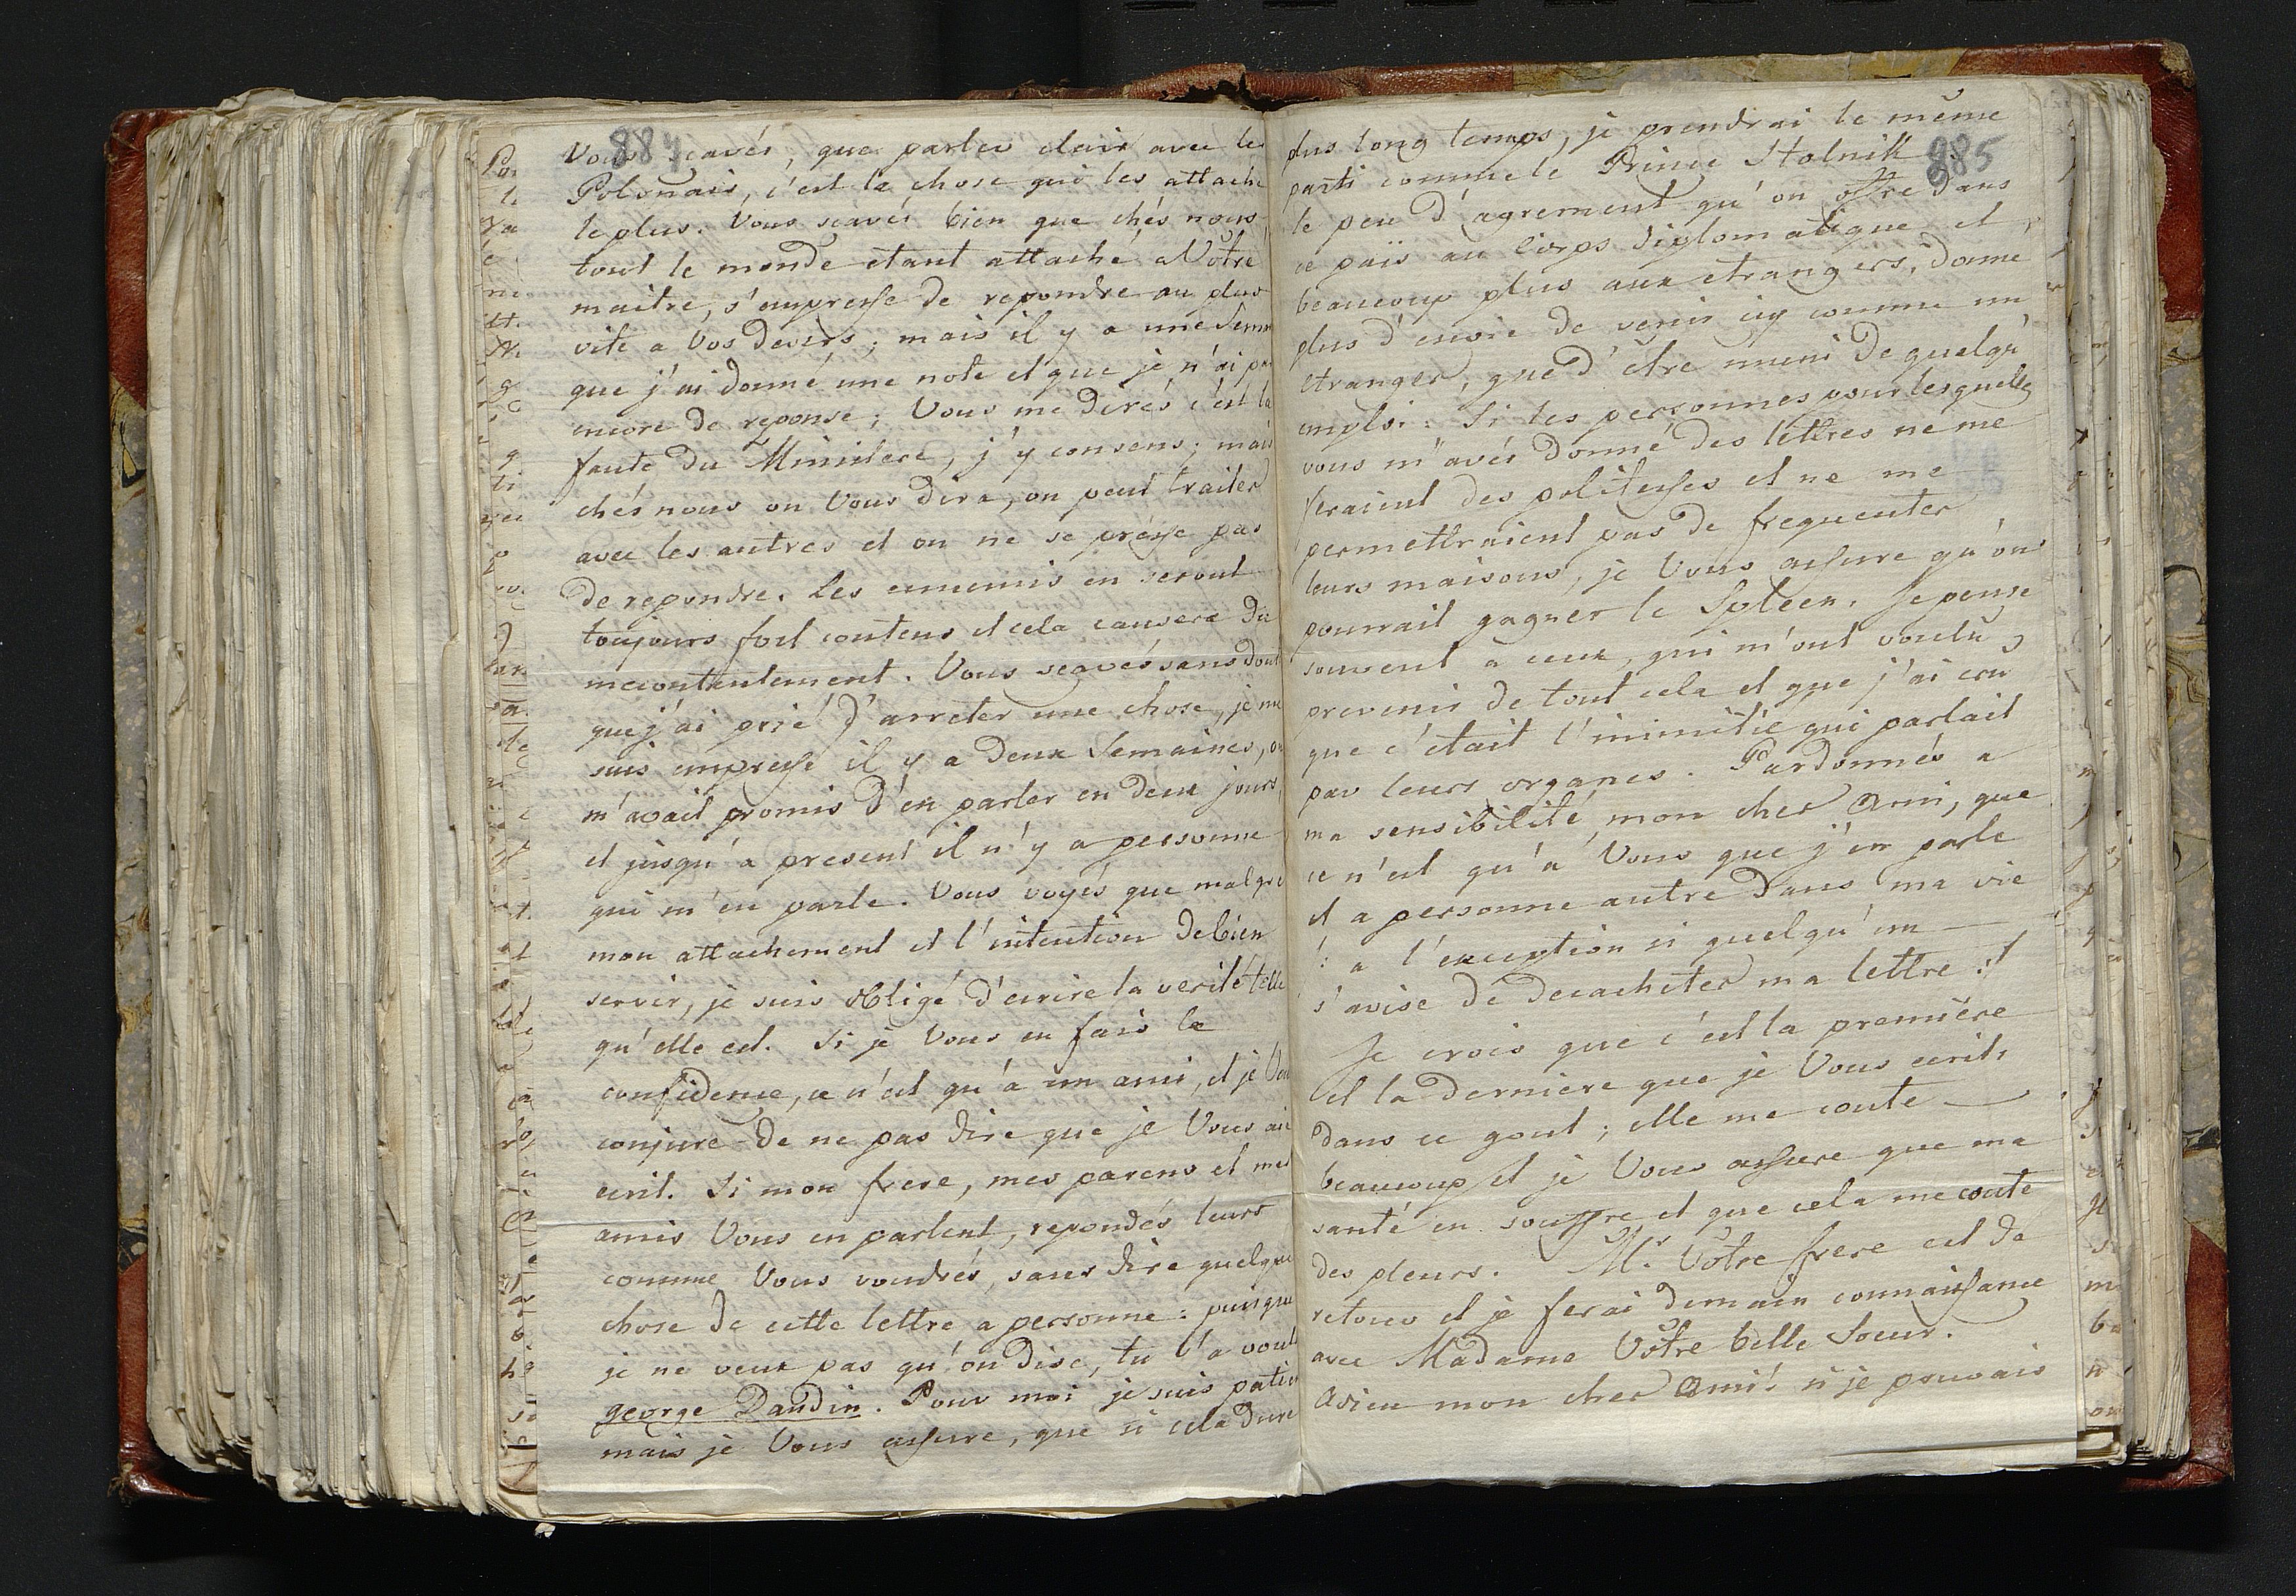 884
Vous scavés, que parler clair avec les
Polonais, c'est la chose qui les attache
le plus. Vous scavés bien que chés nous
tout le monde etant attaché a Vôtre
maitre, s'empresse de repondre au plus
vite a Vos desirs; mais il y a une Sem
que j'ai donné une note et que je n'ai pas
encore de reponse; Vous me dirés c'est la
faute du Ministere, j'y consens; mais
chés nous on Vous dira, on peut traiter
avec les autres et on ne se presse pas
de repondre. Les ennemis en seront
toujours fort contens et cela causera du
mecontentement. Vous scavés sans dout
que j'ai prié d'arreter une chose, je me
suis empressé il y a deux Semaines, on
m'avait promis d'en parler en deux jours,
et jusqu'a present il n'y a personne
qui m'en parle. Vous voyés que malgré
mon attachement et l'intention de bien
servir, je suis obligé d'ecrire la verité telle
qu'elle est. Si je Vous en fais la
confidence, ce n'est qu'à un ami, et je Vous
conjure de ne pas dire que je Vous aie
ecrit. Si mon frere, mes parens et mes
amis Vous en parlent, repondés leurs
comme Vous voudrés, sans dire quelque
chose de cette lettre a personne: puisque
je ne veux pas qu'on dise, tu l'a voul
george Dandin. Pour moi je suis patie
mais je Vous assure, que si cela dure
885
plus long temps, je prendrai le même
parti comme le Prince Stolnik
le peu d'agrement qu'on offre dans
ce païs au Corps diplomatique et
beaucoup plus aux etrangers, donne
plus d'envie de venir icy comme un
etranger, que d'être muni de quelqu'
emploi. Si les personnes pour lesquelles
vous m'avés donné des lettres ne me
feraient des politesses et ne me
permettraient pas de frequenter
leurs maisons, je Vous assure qu'on
pourrait gagner le Spleen. Je pense
souvent à ceux, qui m'ont voulu
prevenir de tout cela et que j'ai cru
que c'était l'inimitié qui parlait
par leurs organes. Pardonnés a
ma sensibilité mon cher Ami, que
ce n'est qu'a Vous que j'en parle
et a personne autre dans ma vie
: a l'exception si quelqu'un
s'avise de decacheter ma lettre :
Je crois que c'est la première
et la dernière que je Vous ecrit,
dans ce gout; elle me coute
beaucoup et je Vous assure que ma
santé en souffre et que cela me coute
des pleurs. Mr. Votre frere est de
retour et je ferai demain connaissance
avec Madame Vôtre belle Soeur.
Adieu mon cher Ami! si je pouvais